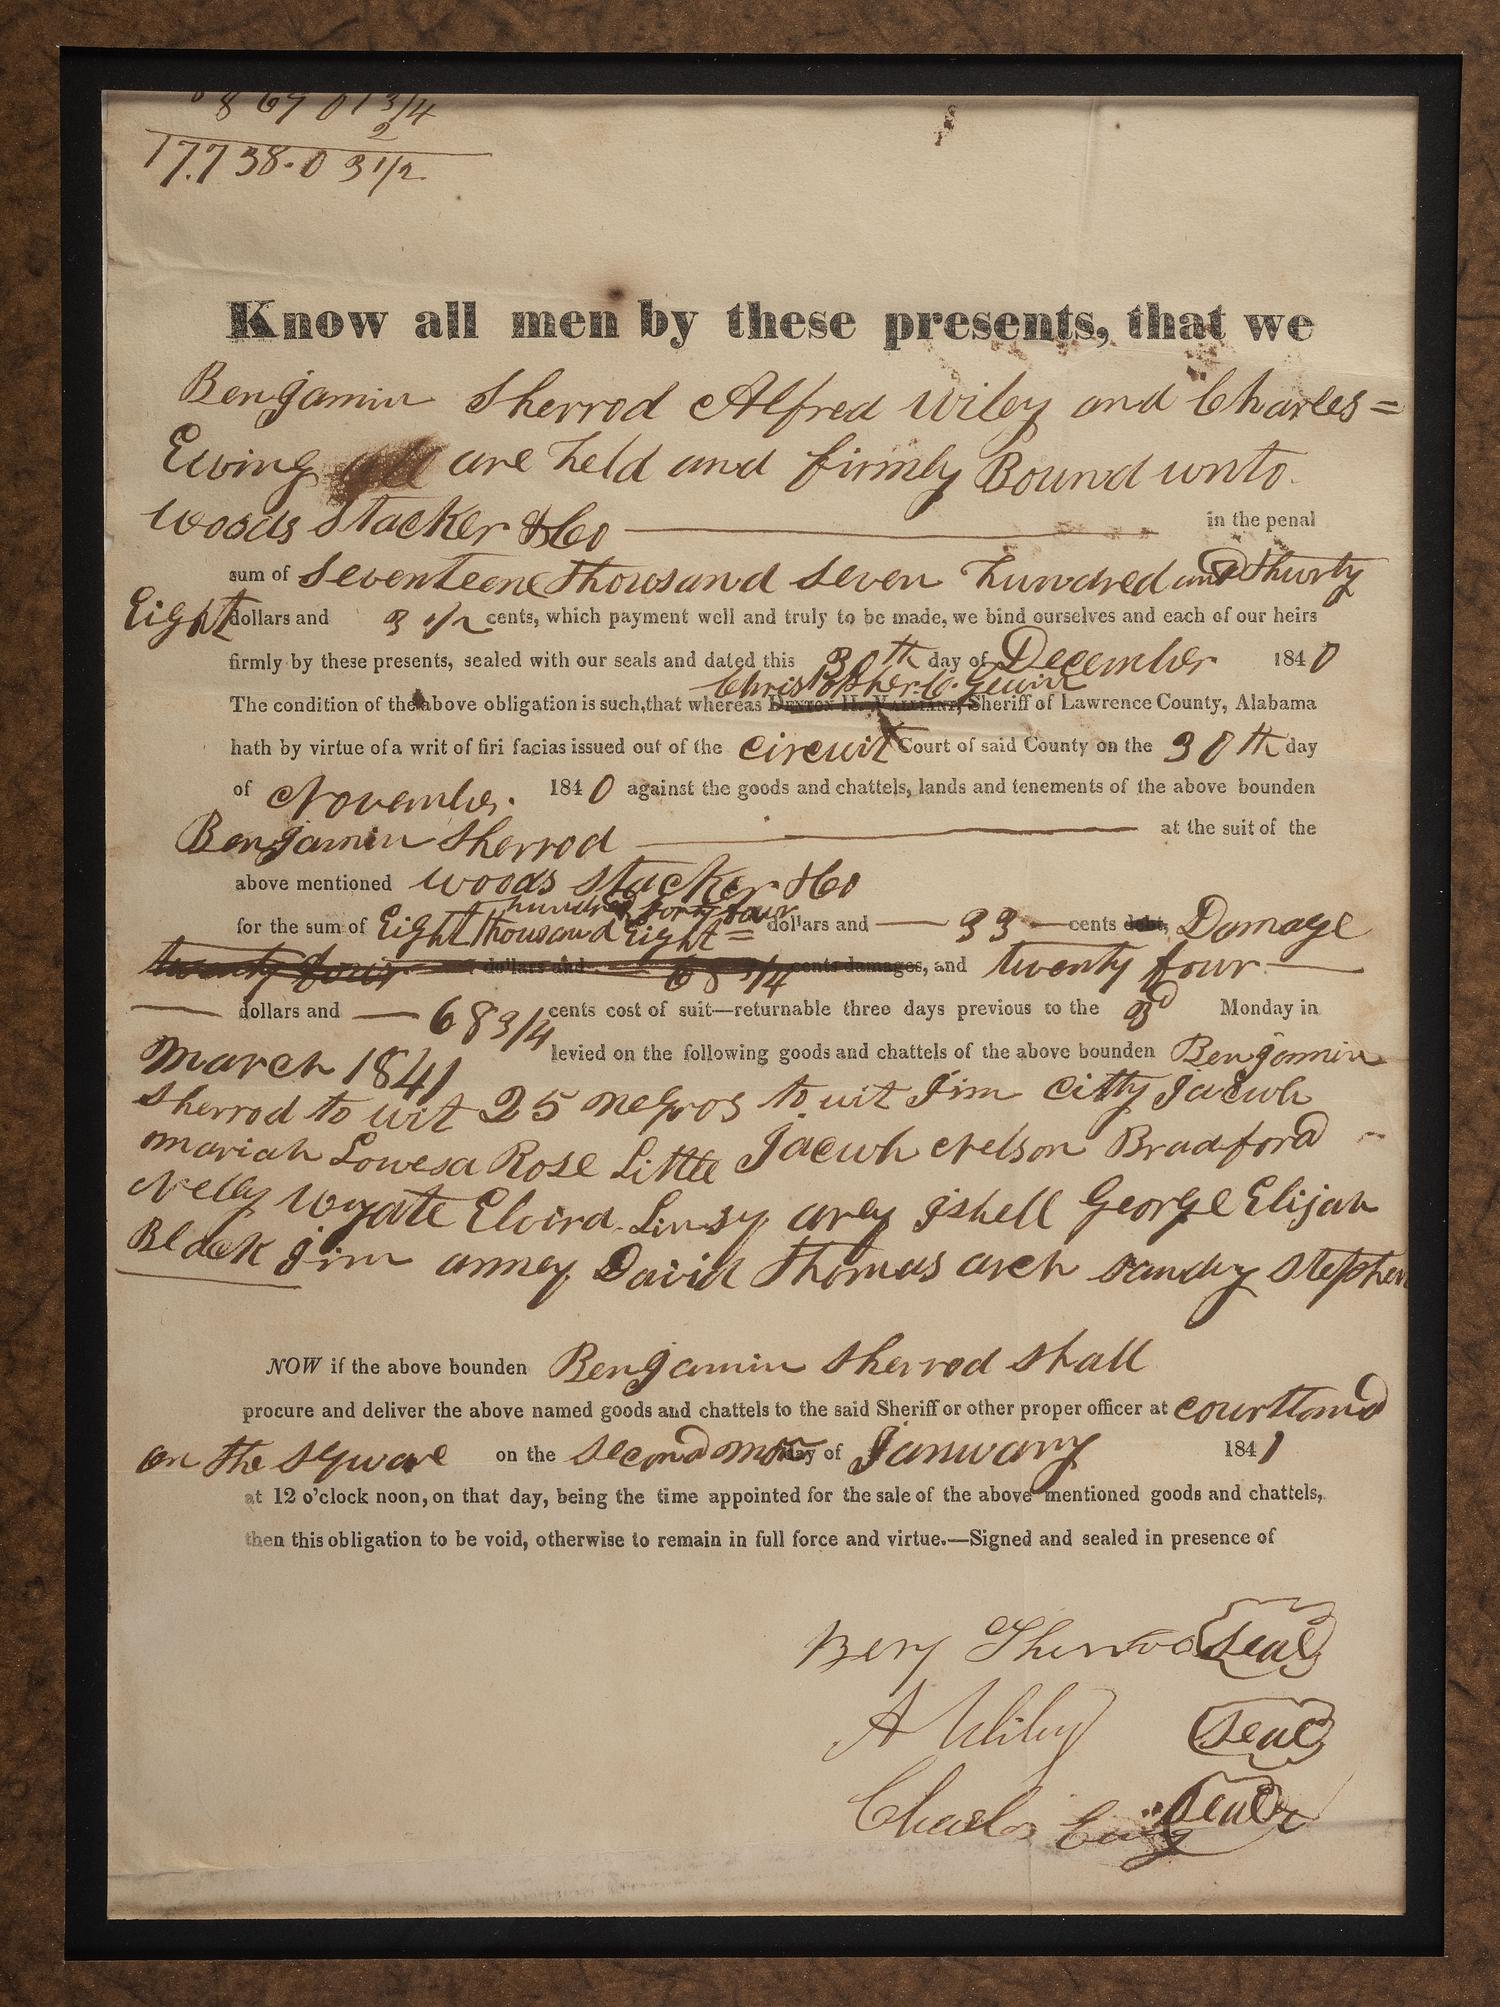 8869 01 3/4
2
17.738.03 1/2
Know all men by these presents, that we
Benjamin Sherrod Alfred Wiley and Charles =
Ewing are held and firmly Bound unto
Woods Stacker & Co
in the penal
sum of Seventeen Thousand Seven hundred and Thirty
Eight dollars and 3 1/2 cents, which payment well and truly to be made, we bind ourselves and each of our heirs
firmly by these presents, sealed with our seals and dated this 30th day of December 1840
Christopher C. Gewin
The condition of the above obligation is such, that whereas Denton H. Valliant, Sheriff of Lawrence County, Alabama
hath by virtue of a writ of firi facias issued out of the circuit Court of said County on the 30th day
of November. 1840 against the goods and chattels, lands and tenements of the above bounden
Benjamin Sherrod at the suit of the
above mentioned Woods Stacker & Co
hundred forty four
for the sum of Eight Thousand Eight = dollars and — 33 — cents debt, Damage
twenty four dollars and — 68 3/4 cents damages, and twenty four —
— dollars and — 68 3/4 cents cost of suit—returnable three days previous to the 3d Monday in
March 1841 levied on the following goods and chattels of the above bounden Benjamin
Sherrod to wit 25 negros to wit Jim Citty Jacub
Mariah Lowesa Rose Little Jacub Nelson Bradford
Nelly Wyate Elvira Linsy arey Ishell George Elijah
Black Jim anney David Thomas arch sandy Stephen
NOW if the above bounden Benjamin Sherrod shall
procure and deliver the above named goods and chattels to the said Sheriff or other proper officer at Courtland
on the square on the second mon day of January 1841
at 12 o'clock noon, on that day, being the time appointed for the sale of the above mentioned goods and chattels,
then this obligation to be void, otherwise to remain in full force and virtue.—Signed and sealed in presence of
Benj Sherrod Seal
A Wiley Seal
Charles Ewing Seal